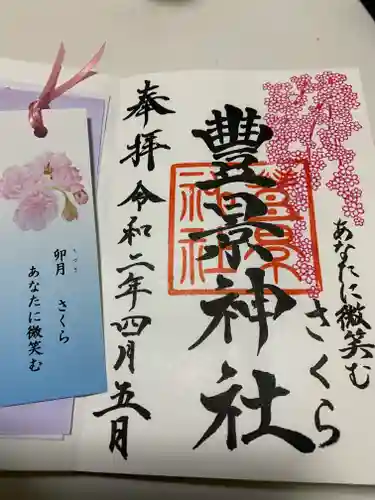 奉拝
令和二年四月五日
豊景神社
豊景神社
さくら
あなたに微笑む
卯月 さくら
うづき
あなたに微笑む